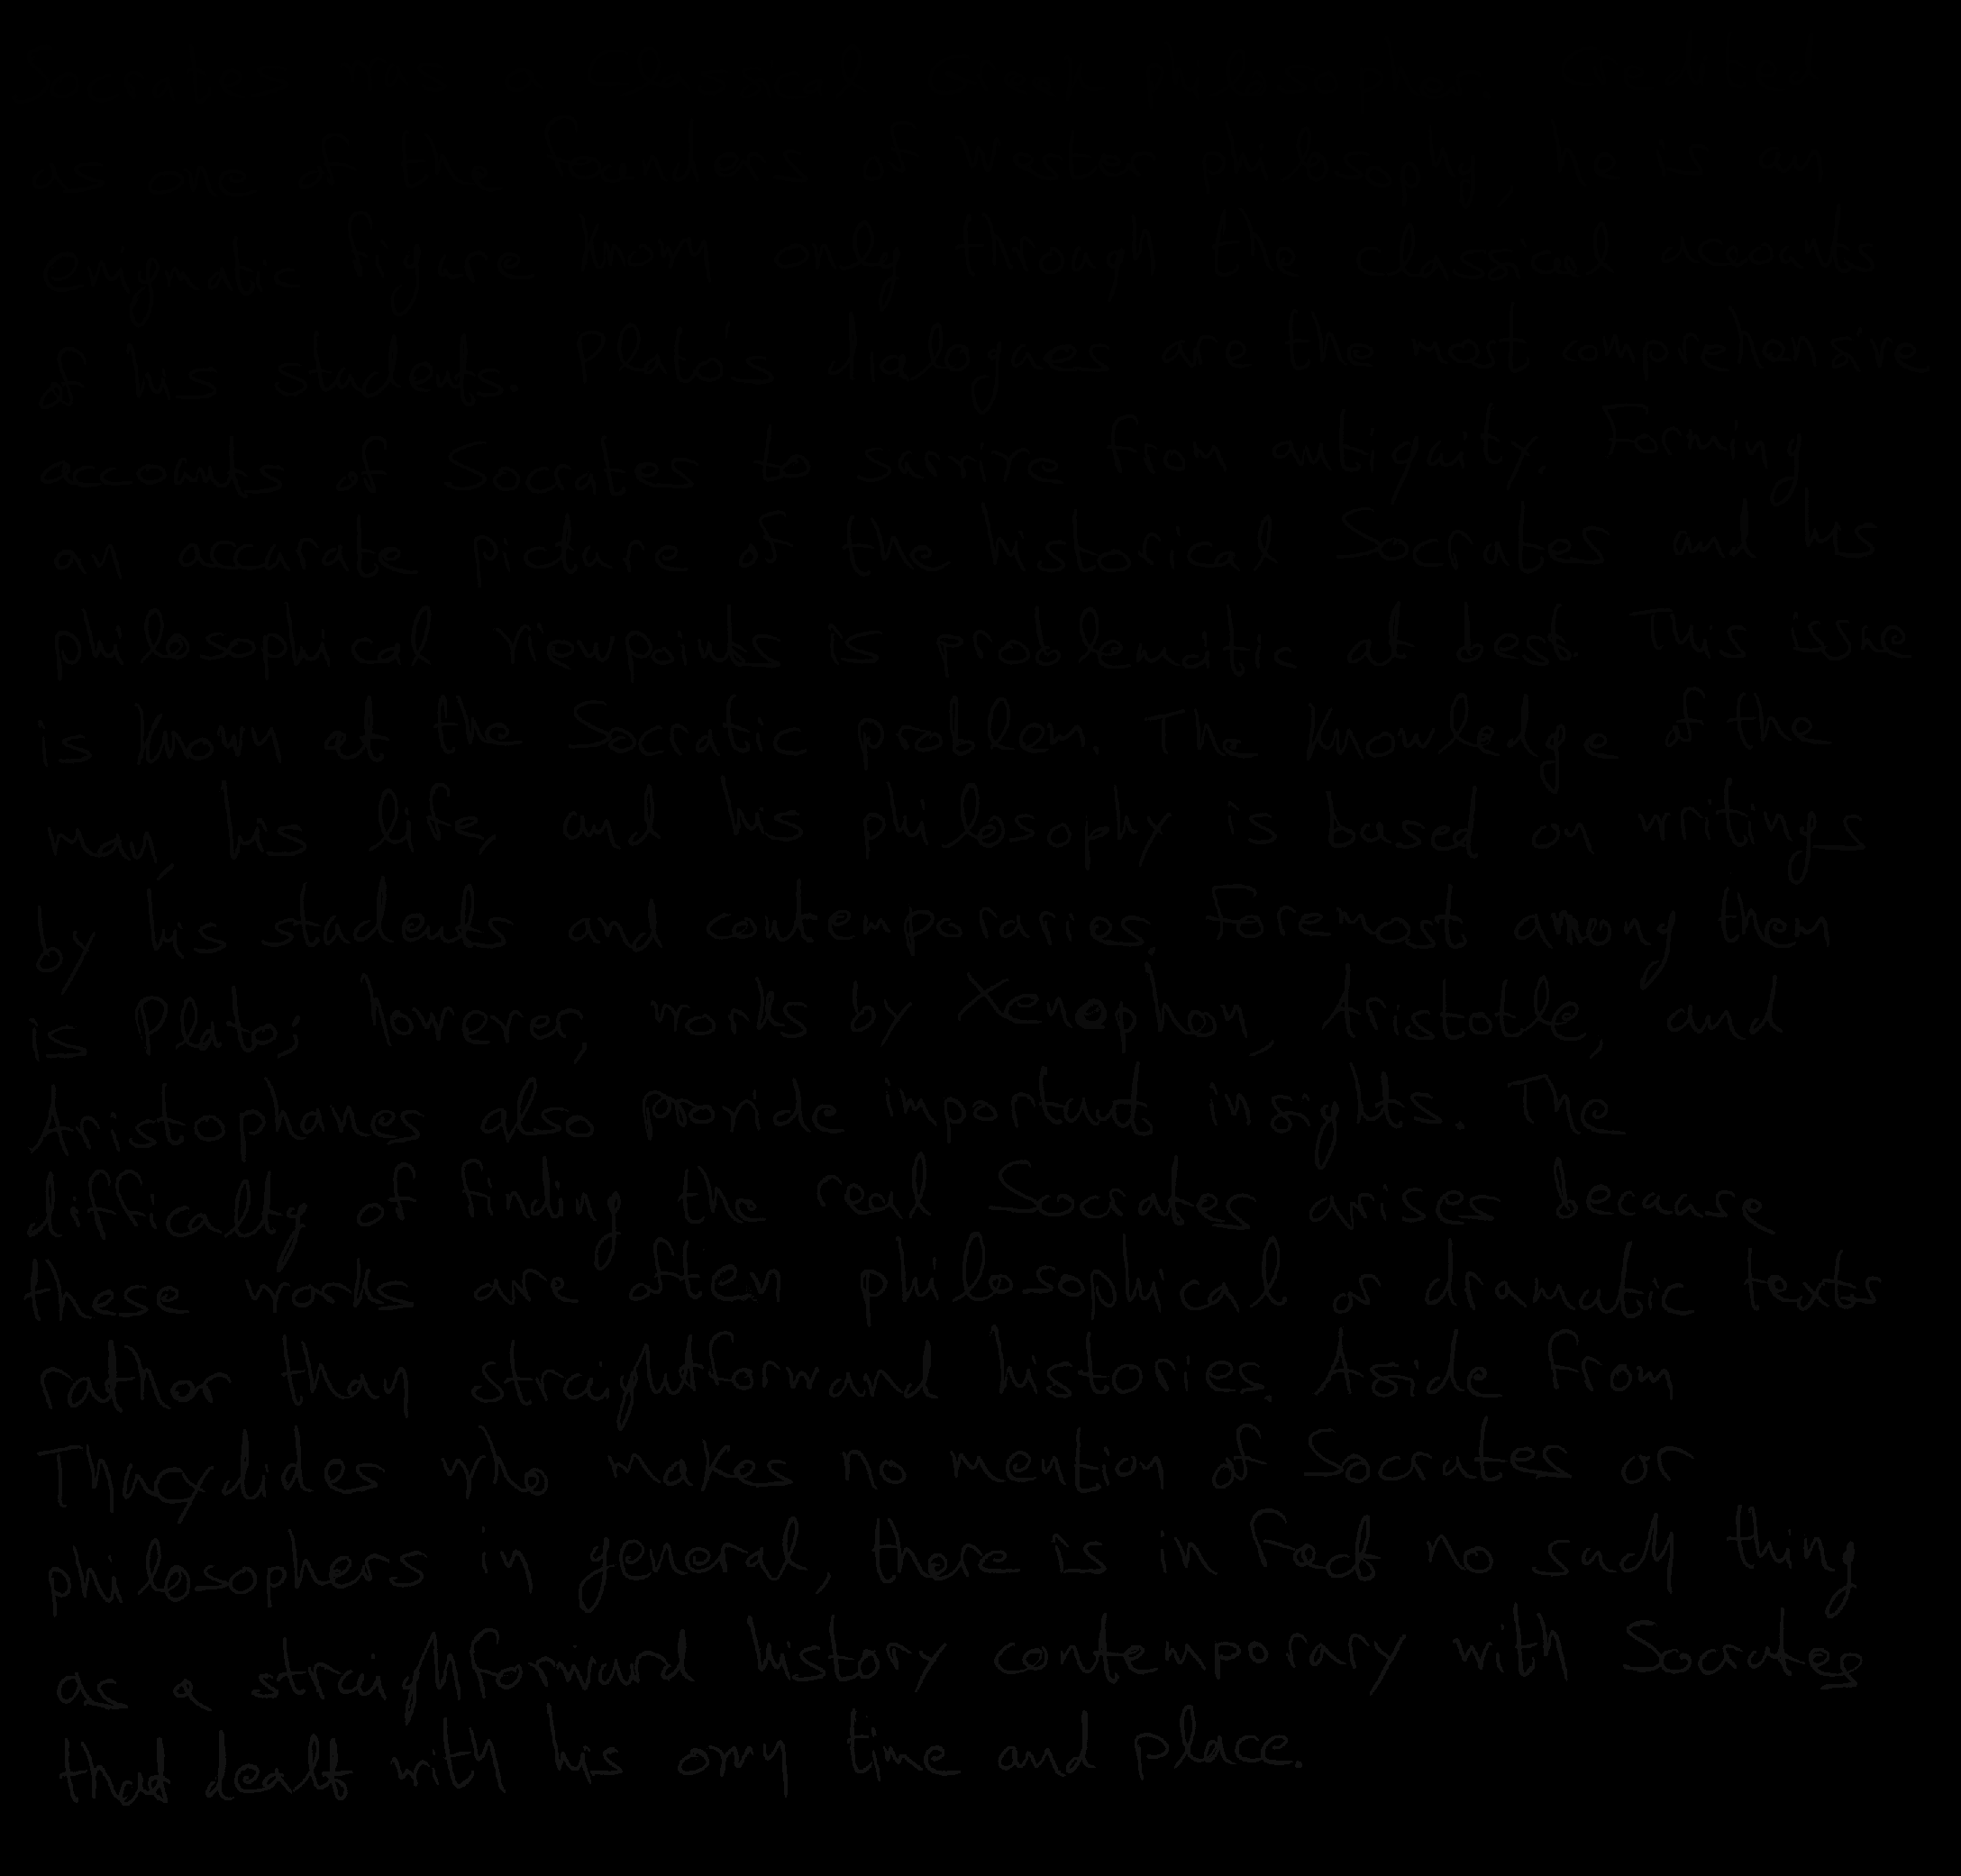 as one of the founders of Wester philosophy, he is an
enigmatic figure known only through the classical accounts
of his students. Plato's dialogues are the most comprehensive
accounts of Socrates to survive from antiquity. Forming
an accurate picture of the historical Socrates and his
philosophical viewpoints is problematic at best. This issue
is known at the Socratic problem. The knowledge of the
man, his life, and his philosophy is based on writings
by his students and contemporaries. Foremost among them
is Plato; however, works by Xenophon, Aristotle, and
Aristophanes also provide important insights. The
difficulty of finding the real Socrates arises because
these works are often philosophical or dramatic texts
rather than straightforward histories. Aside from
Thucydides who makes no mention of Socrates or
philosophers in general, there is in fact no such thing
as a straighforward history contemporary with Socrates
that dealt with his own time and place.